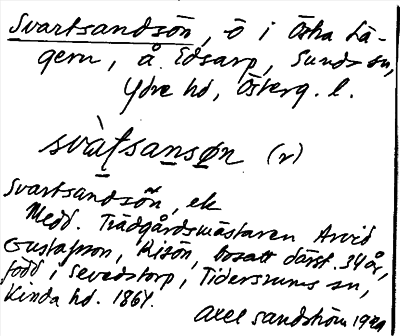 Svartsandsön, ö i Östra Lä-
gern, å Edsarp, Sunds sn,
Ydre hd, Österg. l.
svàt̠sansøn (r)
Svartsandsön, ek
Medd. Trädgårdsmästaren Arvid
Gustafsson, Risön, bosatt därst. 34 år,
född i Sevedstorp, Tidersrums sn,
Kinda hd. 1864.
Axel Sandström